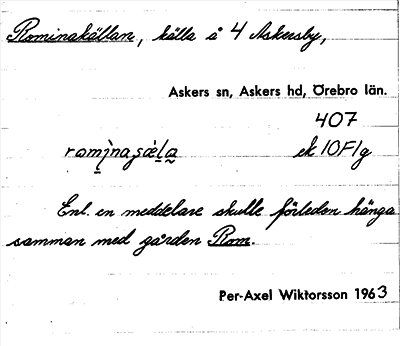 Rominakällan, källa å 4 Askersby,
Askers sn, Askers hd, Örebro län.
407
ek 10F1g
Enl. en meddelare skulle förleden hänga
samman med gården Rom.
Per-Axel Wiktorsson 1963